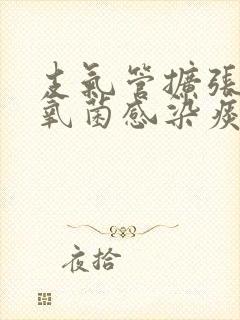 支氣管擴張
氧菌感染痰
夜拾